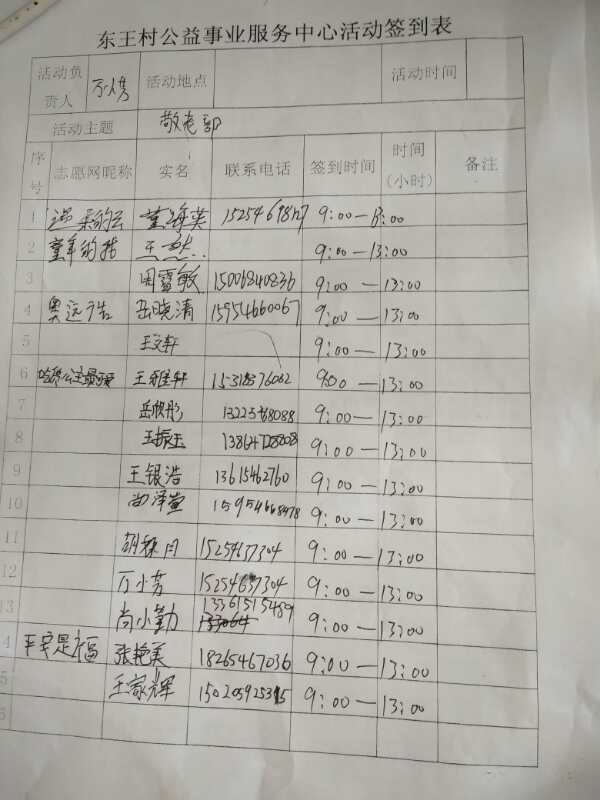 东王村公益事业服务中心活动签到表
活动负责人 万小芳 活动地点 活动时间
活动主题 敬老部
序号 志愿网昵称 实名 联系电话 签到时间 时间(小时) 备注
1 董海英 9:00—13:00
2 王 9:00—13:00
3 周雪敏 15006840836 9:00—13:00
4 奥远浩 岳晓清 15954660067 9:00—13:00
5 王文轩 9:00—13:00
6 王雅轩 15318376062 9:00—13:00
7 岳欣彤 9:00—13:00
8 王振玉 9:00—13:00
9 王银浩 13615462760 9:00—13:00
10 尚泽萱 9:00—13:00
11 15254637304 9:00—13:00
12 万小芳 15254637304 9:00—13:00
13 尚小勤 13361515489 9:00—13:00
4 平安是福 张艳美 18265467036 9:00—13:00
5 王家辉 9:00—13:00